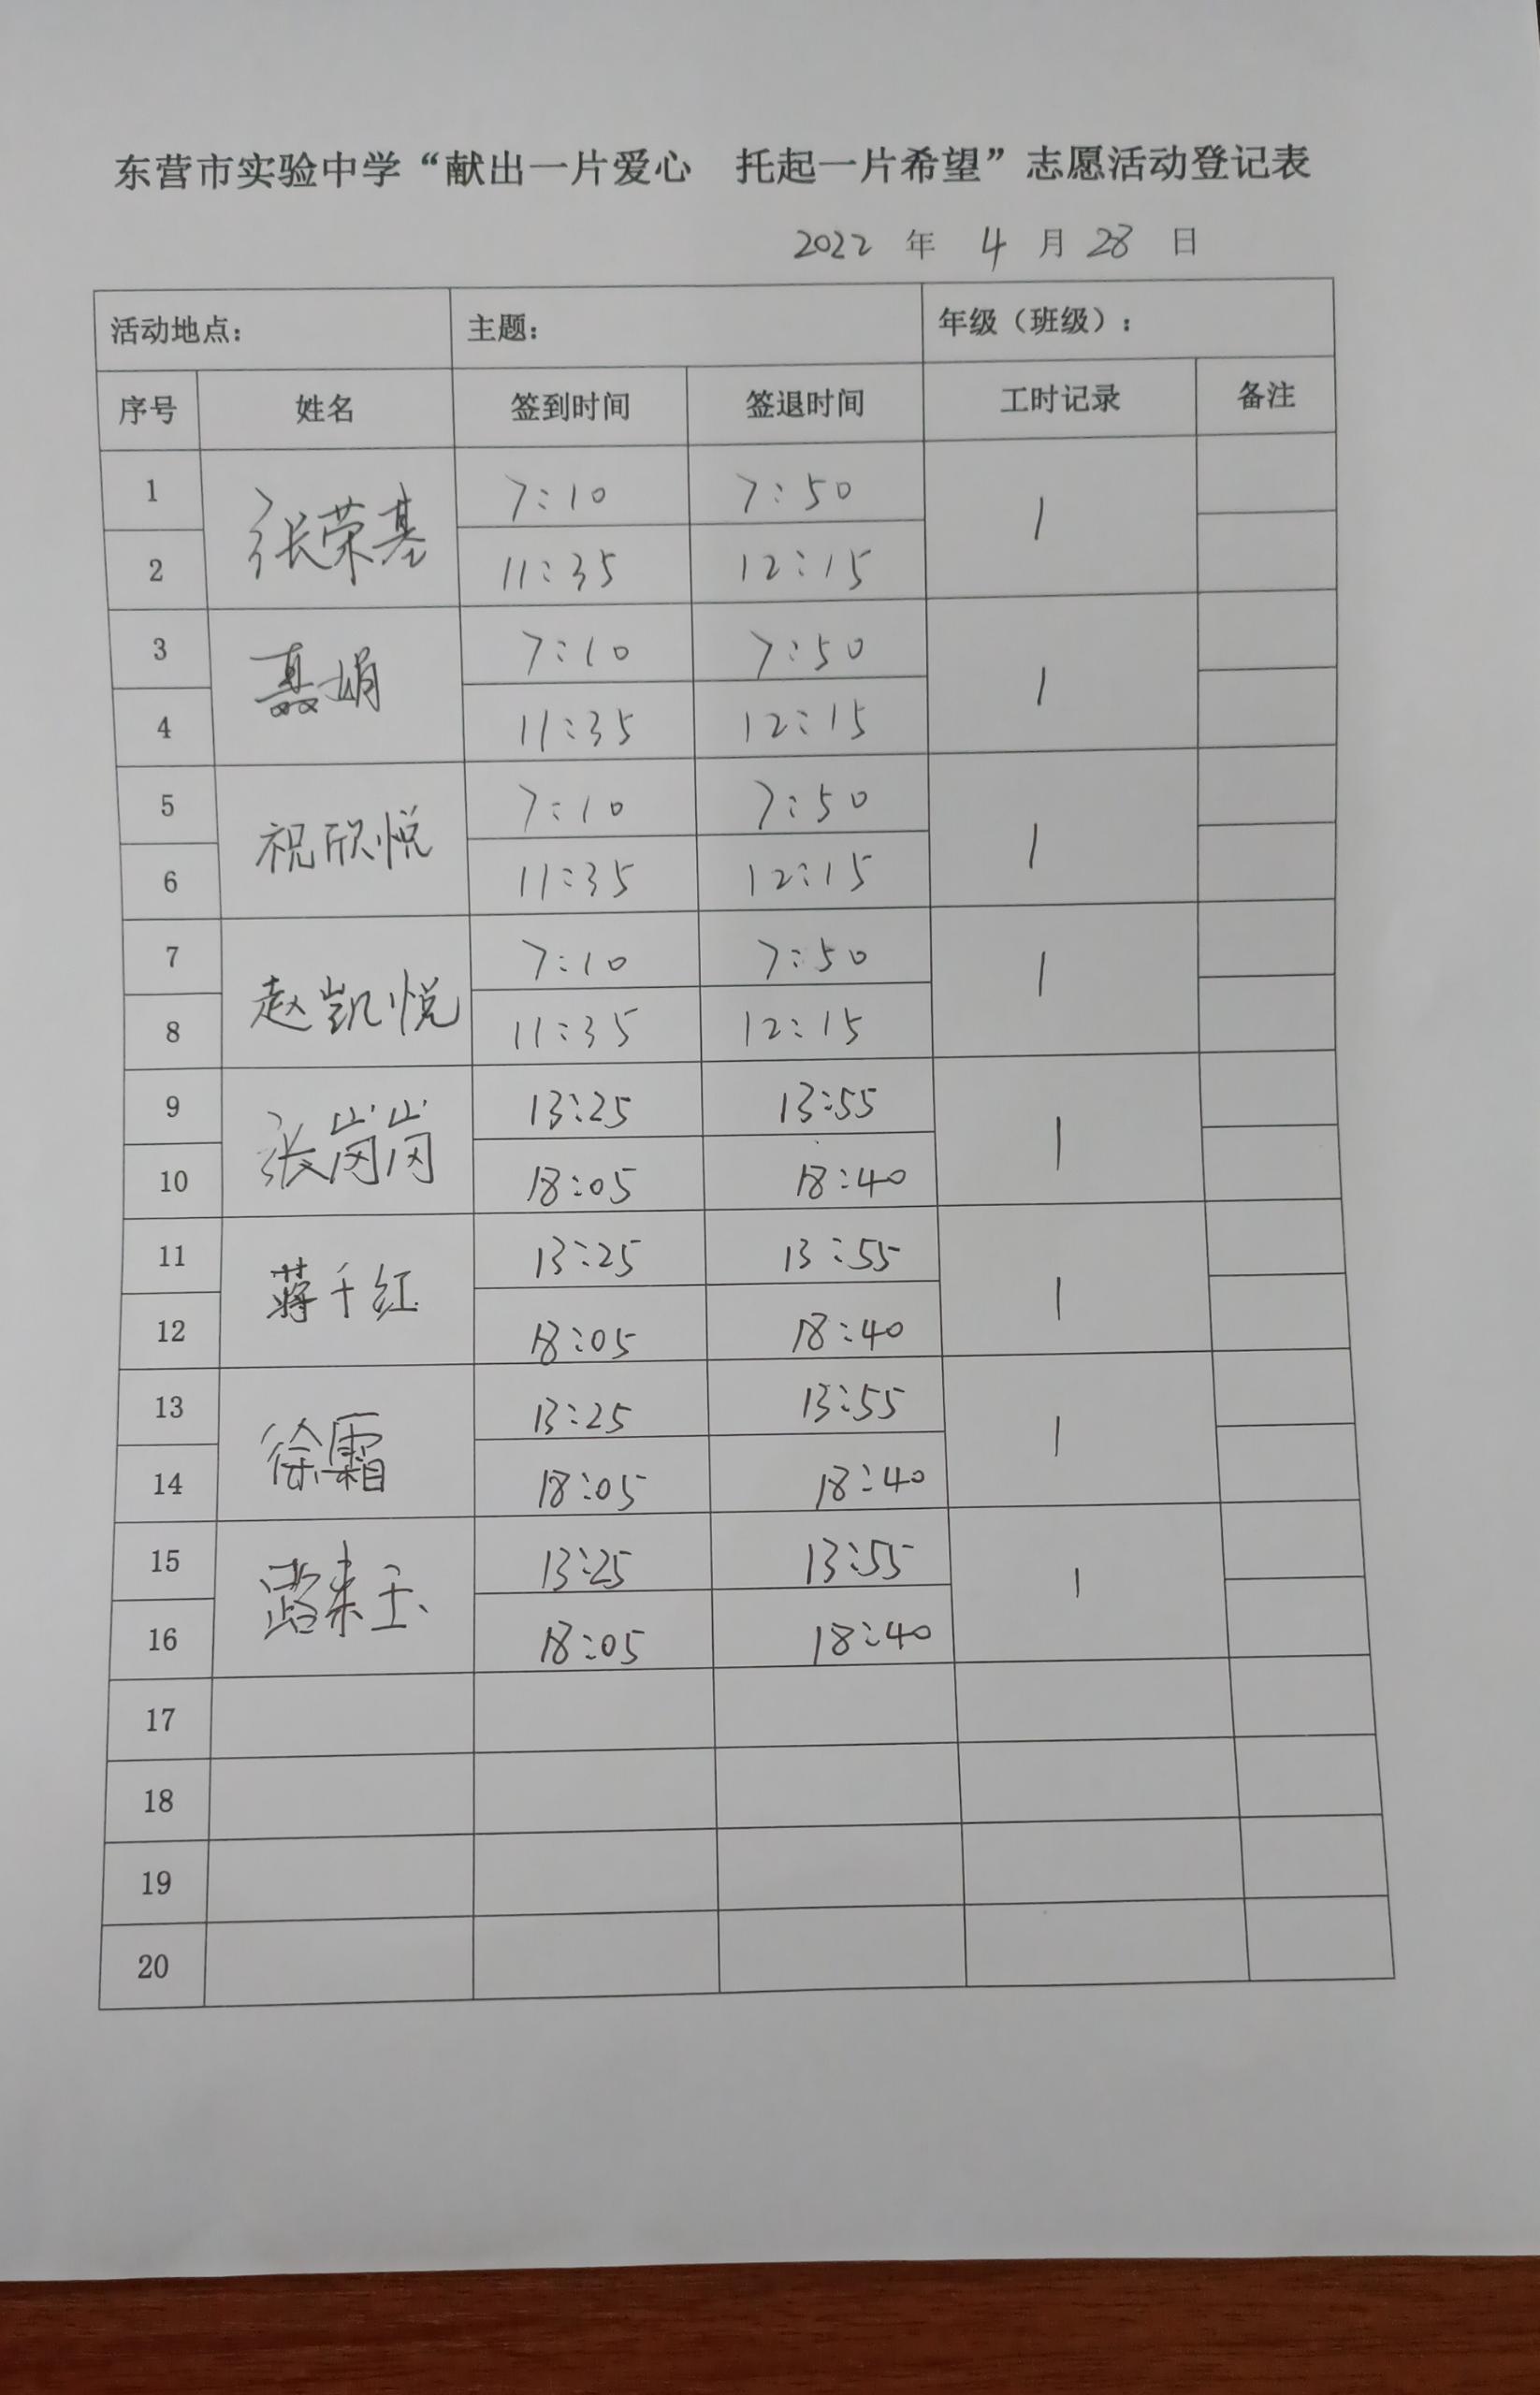 东营市实验中学“献出一片爱心　托起一片希望”志愿活动登记表
2022 年 4 月 28 日
活动地点： 主题： 年级（班级）：
序号 姓名 签到时间 签退时间 工时记录 备注
1 张荣基 7:10 7:50 1
2 11:35 12:15
3 聂娟 7:10 7:50 1
4 11:35 12:15
5 祝欣悦 7:10 7:50 1
6 11:35 12:15
7 赵凯悦 7:10 7:50 1
8 11:35 12:15
9 张岗岗 13:25 13:55 1
10 18:05 18:40
11 蒋千红 13:25 13:55 1
12 18:05 18:40
13 徐霜 13:25 13:55 1
14 18:05 18:40
15 13:25 13:55 1
16 18:05 18:40
17
18
19
20